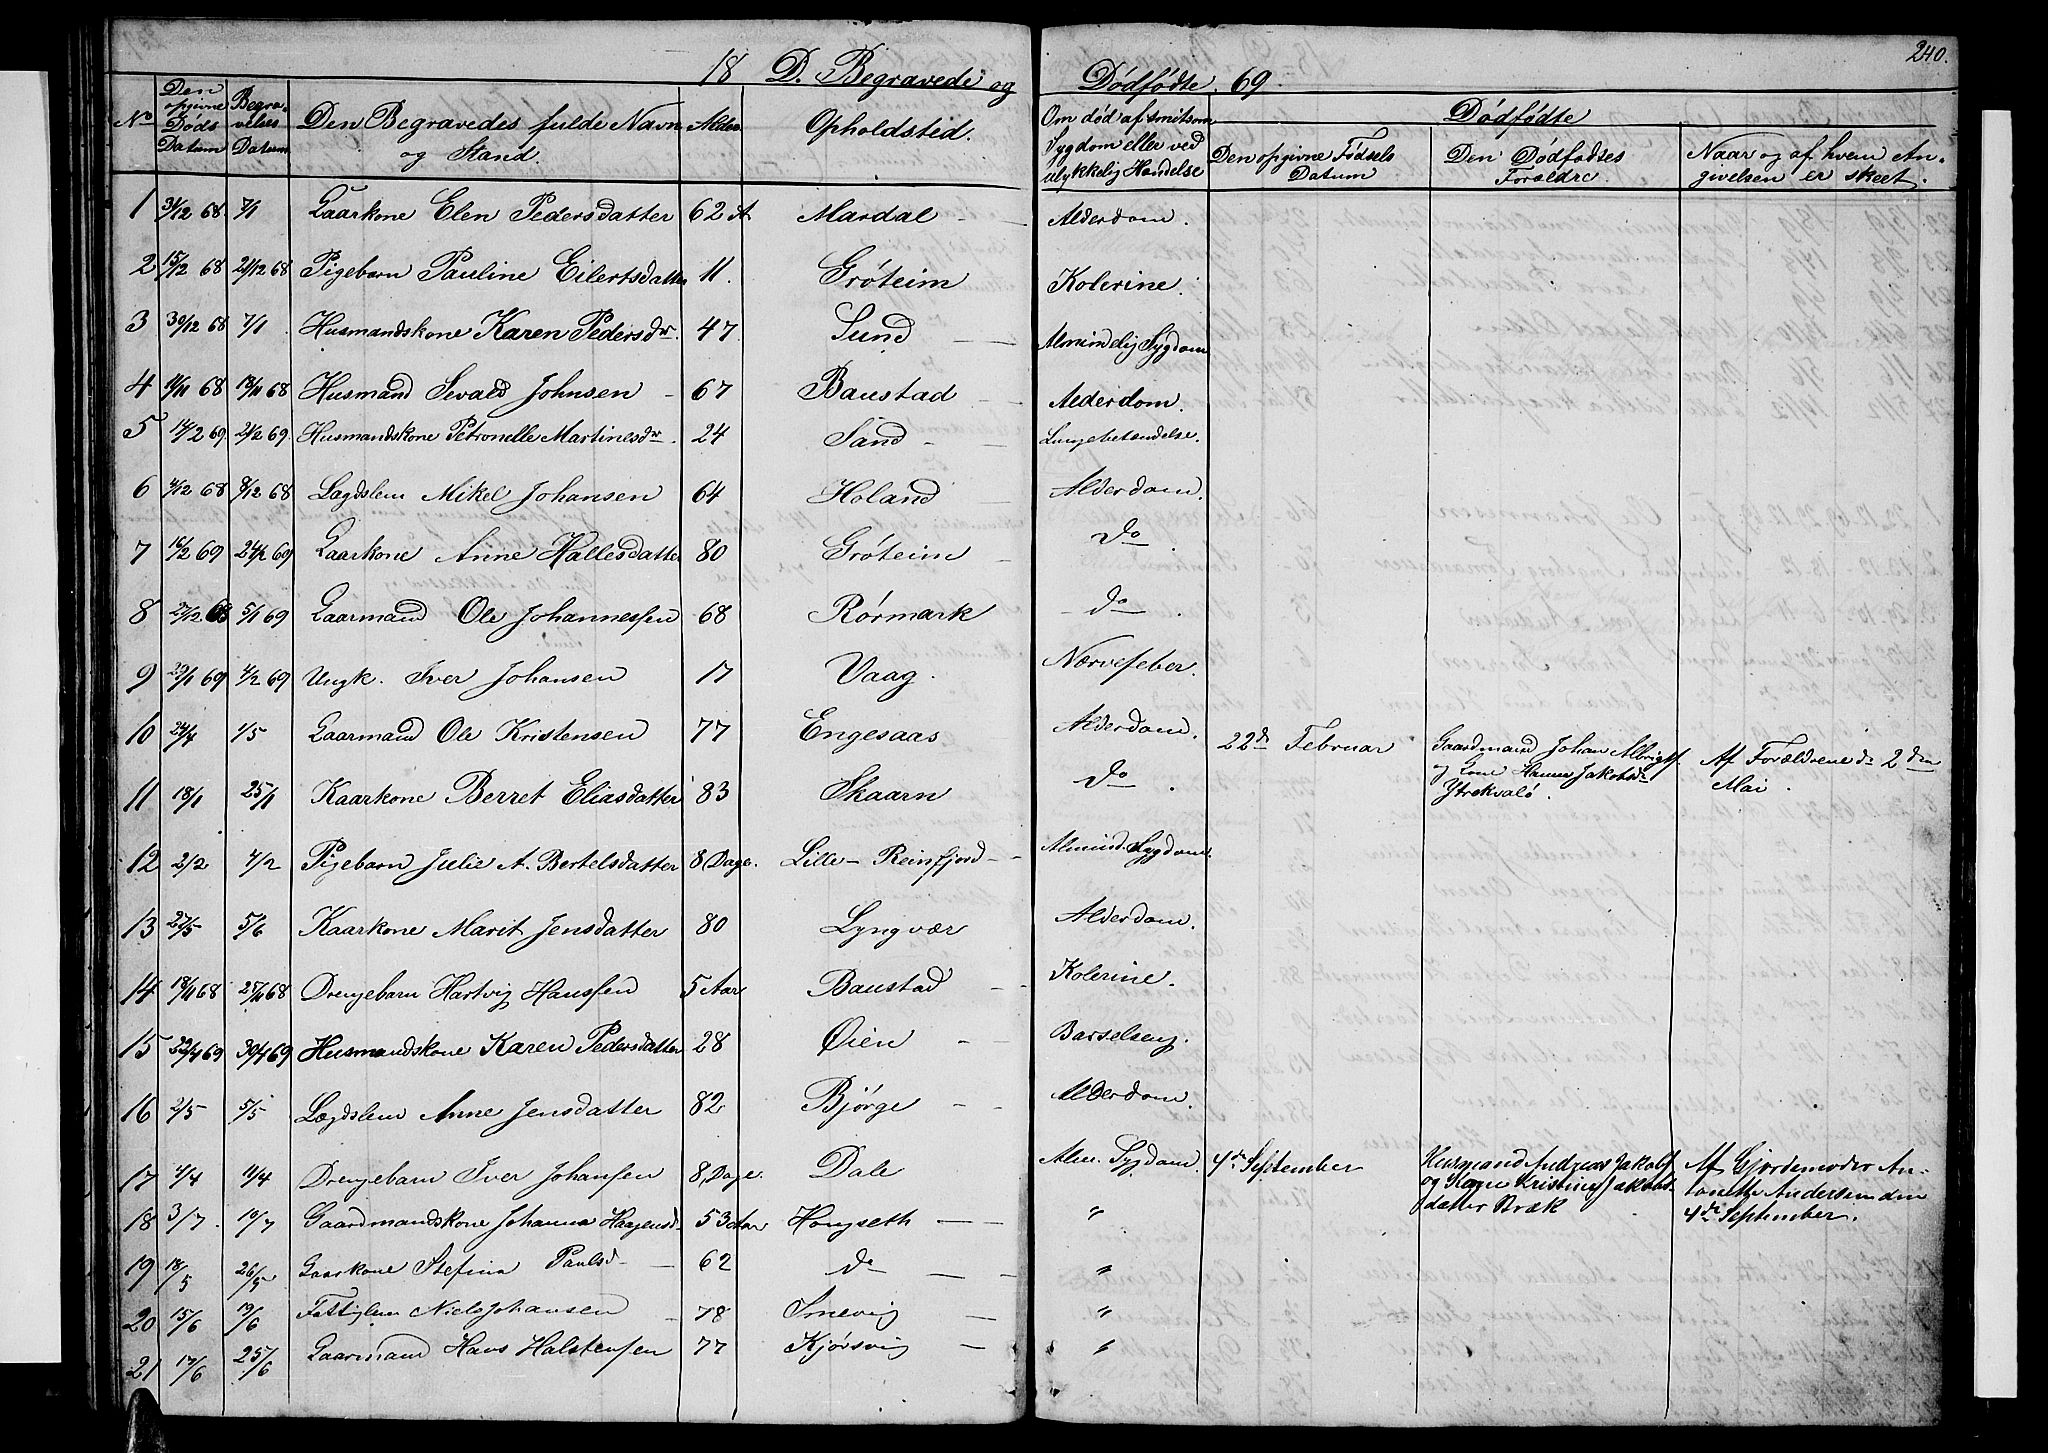 240.
18 D. Begravede og Dødfødte. 69
No Den opgivne Døds Datum Begravelses Datum Den Begravedes fulde Navn og Stand. Alder Opholdsted. Om død af smitsom Sygdom eller ved ulykkelig Hændelse Dødfødte
Den opgivne Fødsels Datum Den Dødfødtes Forældre. Naar og af hvem Angivelsen er skeet.
1 31/12 68 7/1 Gaarkone Elen Pedersdatter 62 A Mardal Alderdom.
2 15/12 68 21/12 68 Pigebarn Pauline Eilertsdatter 11. Grøteim Kolerine.
3 30/12 68 7/1 Husmandskone Karen Pedersdr. 47 Sund Almindelig Sygdom
4 11/11 68 18/11 68 Husmand Sivald Johnsen 67 Baustad Alderdom.
5 14/2 69 21/2 69. Husmandskone Petronelle Martinesdr. 24 Sand Lungebetændelse.
6 4/12 68 8/12 68 Lagdslem Mikel Johansen 64 Holand Alderdom.
7 16/2 69 24/2 69 Gaarkone Anne Hallesdatter 80 Grøteim do
8 27/12 68 5/1 69 Gaarmand Ole Johannessen 68 Rørmark do.
9 29/1 69 4/2 69 Ungk. Iver Johansen 17 Vaag. Nærvefeber.
10 24/4 1/5 Gaarmand Ole Kristensen 77 Engesaas Alderdom.
22de Februar Gaardmand Johan Albrigts. og Kone Hanna Jakobsdr Ytrekvalø. Af Forældrene dn 2den Mai.
11 18/1 25/1 Kaarkone Berret Eliasdatter 83 Skaarn do.
12 2/2 4/2 Pigebarn Julie A. Bertelsdatter 8 Dage. Lille-Reinfjord Almind. Sygdom.
13 27/5 5/6 Kaarkone Marit Jensdatter 80 Lyngvær Alderdom.
14 18/11 68 25/11 68 Drengebarn Hartvig Hanssen 5 Aar Baustad Kolerine.
15 22/4 69 30/4 69 Husmandskone Karen Pedersdatter 28 Øien Barselseng.
16 2/5 5/5 Lægdslem Anne Jensdatter 82 Bjørge Alderdom.
17 4/4 11/4 Drengebarn Iver Johansen 8 Dage. Dale Alm. Sygdom.
4de September Husmand Andreas Jakobs. og Kone Kristine Jakobsdatter Bræk Af Gjordemoder Antonette Andersen den 4de September.
18 3/7. 10/7 Gaardmandskone Johanna Haagensd. 53 Aar Hongseth "
19 18/5 26/5 Gaarkone Stefina Paulsd. 62 do "
20 15/6 19/6 Fattiglem Niels Johansen 78 Smevig "
21 17/6 25/6 Gaarmand Hans Halstensen 77 Kjørsvig "